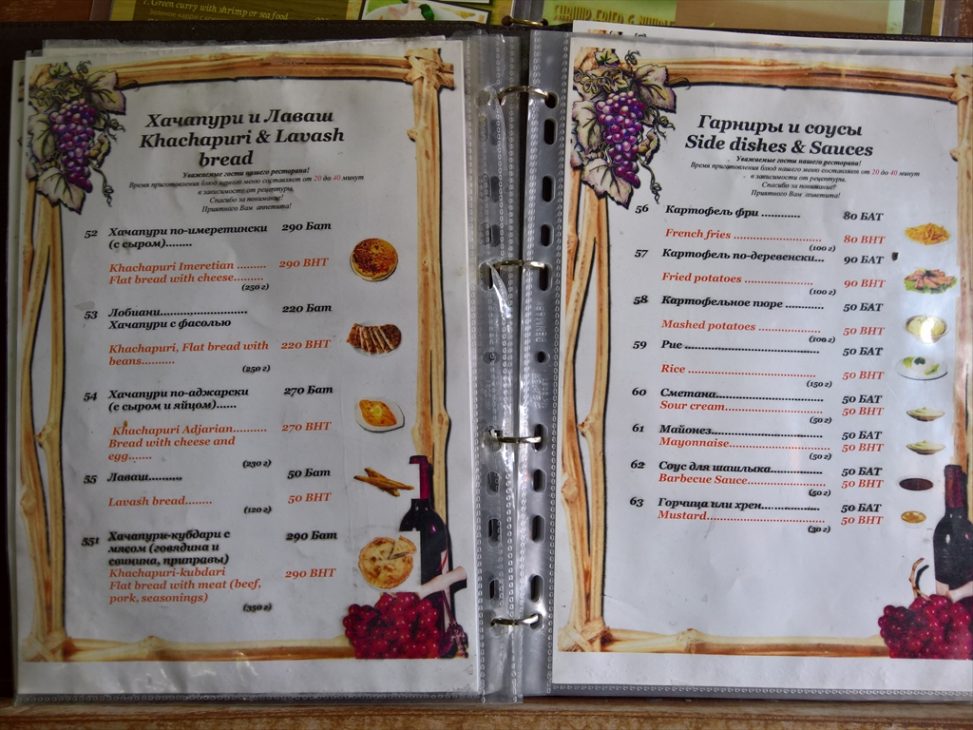 2. Green curry with shrimp or sea food
Хачапури и Лаваш
Khachapuri & Lavash
bread
Уважаемые гости нашего ресторана!
Время приготовления блюд нашего меню составляет от 20 до 40 минут
в зависимости от рецептуры.
Спасибо за понимание!
Приятного Вам аппетита!
52 Хачапури по-имеретински 290 Бат
(с сыром)........
Khachapuri Imeretian ......... 290 BHT
Flat bread with cheese.........
(250 г)
53 Лобиани.......................... 220 Бат
Хачапури с фасолью
Khachapuri, Flat bread with 220 BHT
beans..........
(250 г)
54 Хачапури по-аджарски 270 Бат
(с сыром и яйцом)......
Khachapuri Adjarian.......... 270 BHT
Bread with cheese and
egg.......
(230 г)
55 Лаваш.......... 50 Бат
Lavash bread........ 50 BHT
(120 г)
551 Хачапури-кубдари с 290 Бат
мясом (говядина и
свинина, приправы)
Khachapuri-kubdari 290 BHT
Flat bread with meat (beef,
pork, seasonings)
(350 г)
Гарниры и соусы
Side dishes & Sauces
Уважаемые гости нашего ресторана!
Время приготовления блюд нашего меню составляет от 20 до 40 минут
в зависимости от рецептуры.
Спасибо за понимание!
Приятного Вам аппетита!
56 Картофель фри ............ 80 БАТ
French fries ........................ 80 BHT
(100 г)
57 Картофель по-деревенски... 90 БАТ
Fried potatoes ..................... 90 BHT
(100 г)
58 Картофельное пюре .......... 50 БАТ
Mashed potatoes ................. 50 BHT
(100 г)
59 Рис ........................................ 50 БАТ
Rice ....................................... 50 BHT
(150 г)
60 Сметана............................... 50 БАТ
Sour cream............................ 50 BHT
(50 г)
61 Майонез............................... 50 БАТ
Mayonnaise........................... 50 BHT
(50 г)
62 Соус для шашлыка............... 50 БАТ
Barbecue Sauce..................... 50 BHT
(50 г)
63 Горчица или хрен................. 50 БАТ
Mustard................................. 50 BHT
(30 г)